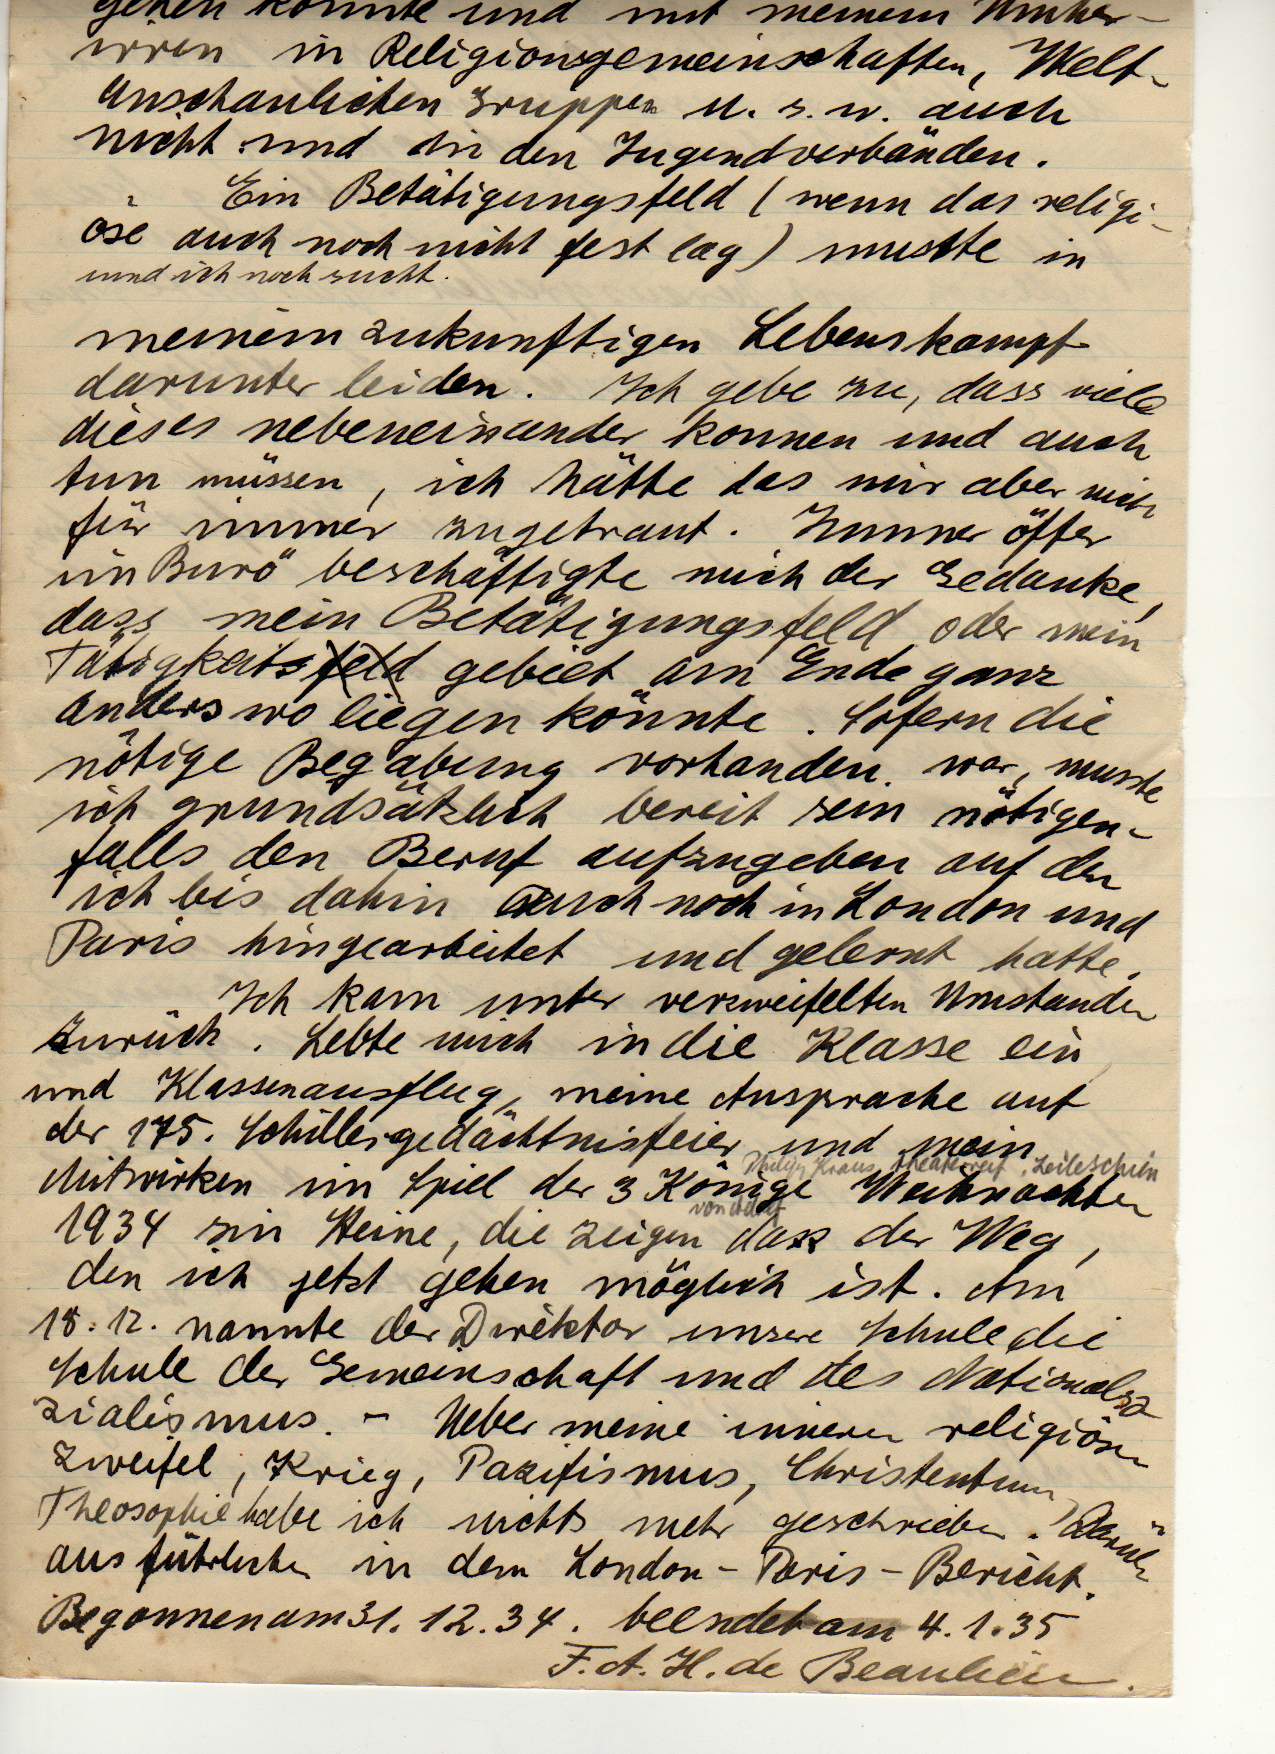 gehen könnte und mit meinem Umher-
irren in Religionsgemeinschaften, Welt-
anschaulichen Gruppen u. s. w. auch
nicht und in den Jugendverbänden.
Ein Betätigungsfeld (wenn das religi-
öse auch noch nicht fest lag) musste in
und ich noch sucht.
meinem zukunftigen Lebenskampf
darunter leiden. Ich gebe zu, dass viele
dieses nebeneinander konnen und auch
tun müssen, ich hätte das mir aber nicht
für immer zugetraut. Immer öfter
im Burö beschäftigte mich der Gedanke,
dass mein Betätigungsfeld oder mein
Tätigkeitsfeld gebiet am Ende ganz
anderswo liegen könnte. Sofern die
nötige Begabung vorhanden war, musste
ich grundsätzlich bereit sein nötigen-
falls den Beruf aufzugeben auf den
ich bis dahin auch noch in London und
Paris hingearbeitet und gelernt hatte.
Ich kam unter verzweifelten Umstanden
zurück. Lebte mich in die Klasse ein
und Klassenausflug, meine Ansprache auf
der 175. Schillergedächtnisfeier und mein
Philipp Kraus, theaterreif,
Mitwirken im Spiel der 3 Könige Weihnachten
1934 sin Steine, die zeigen dass der Weg,
den ich jetzt gehen möglich ist. Am
18. 12. nannte der Direktor unsere Schule die
Schule der Gemeinschaft und des Nationalso
zialismus. - Ueber meine inneren religiösen
Zweifel, Krieg, Pazifismus, Christentum,
Theosophie habe ich nichts mehr geschrieben. Darüber
ausführlicher in dem London-Paris-Bericht.
Begonnen am 31. 12. 34. beendet am 4. 1. 35
F. A. H. de Beaulieu.